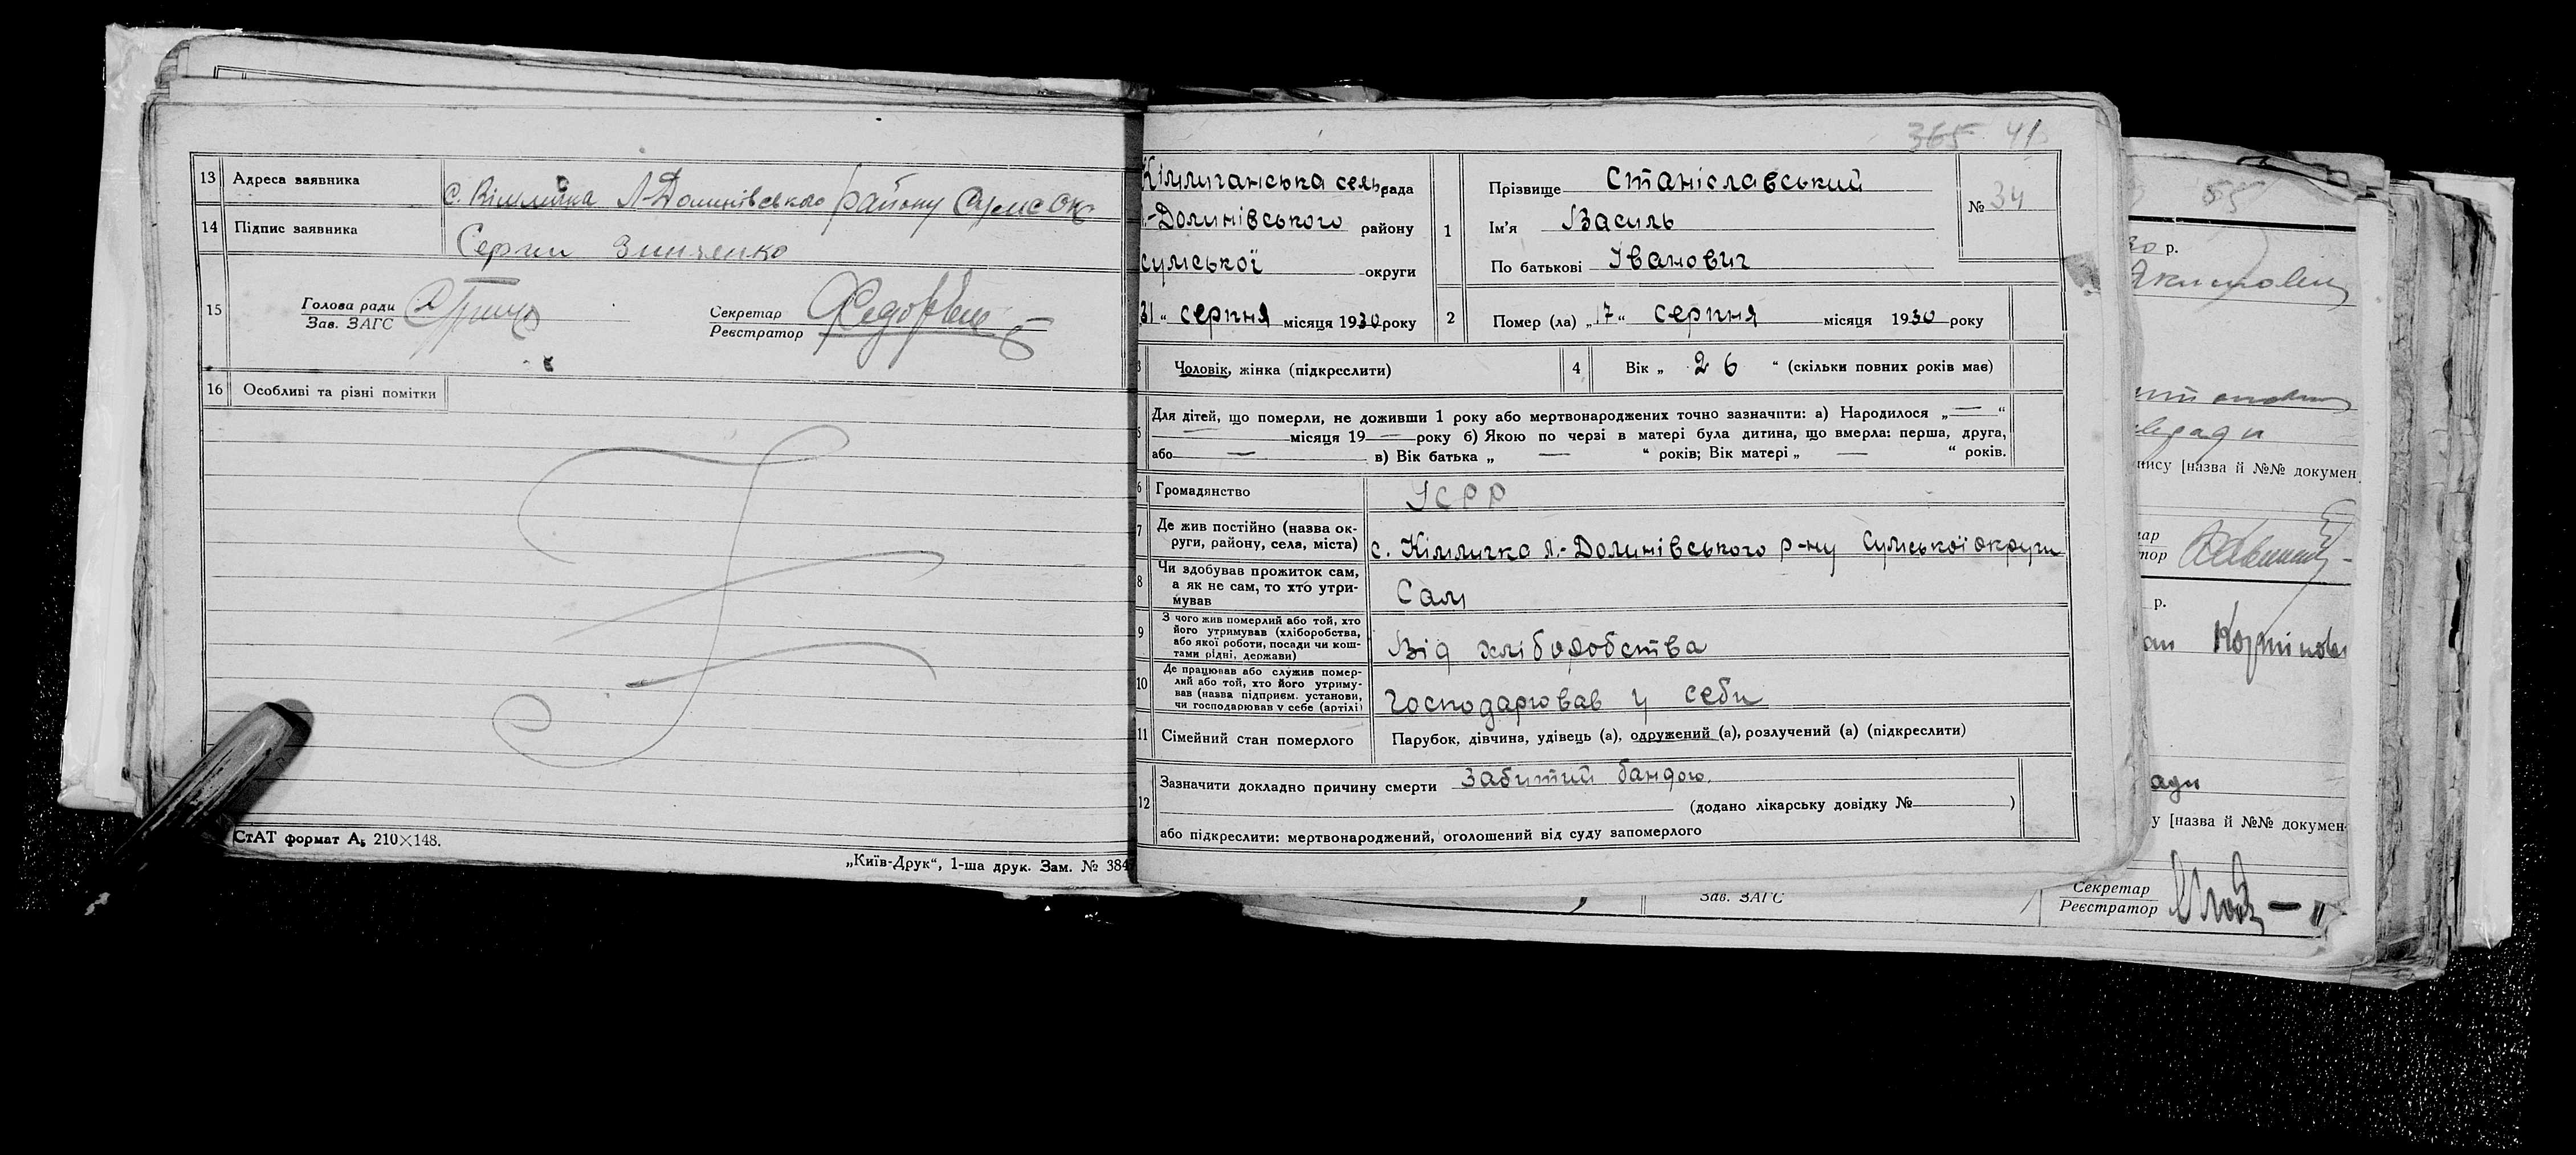 13 Адреса заявника с. Кімличка Л-Долинівського району Сумськ ок
14 Підпис заявника Сергии Зинченко
15 Голова ради Секретар
Зав. ЗАГС Реєстратор
16 Особливі та різні помітки
СтАТ формат А₅ 210×148.
„Київ-Друк“, 1-ша друк. Зам. № 384
365 41
Кімличанська сельрада
Л.-Долинівського району
Сумської округи
31 “ серпня місяця 1930 року
1 Прізвище Станіславський
Ім'я Василь
По батькові Іванович
№ 34
2 Помер (ла) „17“ серпня місяця 1930 року
3 Чоловік, жінка (підкреслити)
4 Вік „ 26 “ (скільки повних років має)
5 Для дітей, що померли, не доживши 1 року або мертвонароджених точно зазначити: а) Народилося „—“
— місяця 19—року б) Якою по черзі в матері була дитина, що вмерла: перша, друга,
або — в) Вік батька „ — “ років; Вік матері „ — “ років.
6 Громадянство УСРР
7 Де жив постійно (назва ок-
руги, району, села, міста) с. Кімличка Л.-Долинівського р-ну Сумської округи
8 Чи здобував прожиток сам,
а як не сам, то хто утри-
мував Сам
9 З чого жив померлий або той, хто
його утримував (хліборобства,
або якої роботи, посади чи кош-
тами рідні, держави) Від хліборобства
10 Де працював або служив помер-
лий або той, хто його утриму-
вав (назва підприєм. установи,
чи господарював у себе (артілі) Господарював у себи
11 Сімейний стан померлого Парубок, дівчина, удівець (а), одружений (а), розлучений (а) (підкреслити)
12 Зазначити докладно причину смерти Забитий бандою.
(додано лікарську довідку № )
або підкреслити: мертвонароджений, оголошений від суду запомерлого
Зав. ЗАГС
55
30 р.
пису [назва й №№ докумен
р.
ади
у [назва й №№ докумен
Секретар
Реєстратор